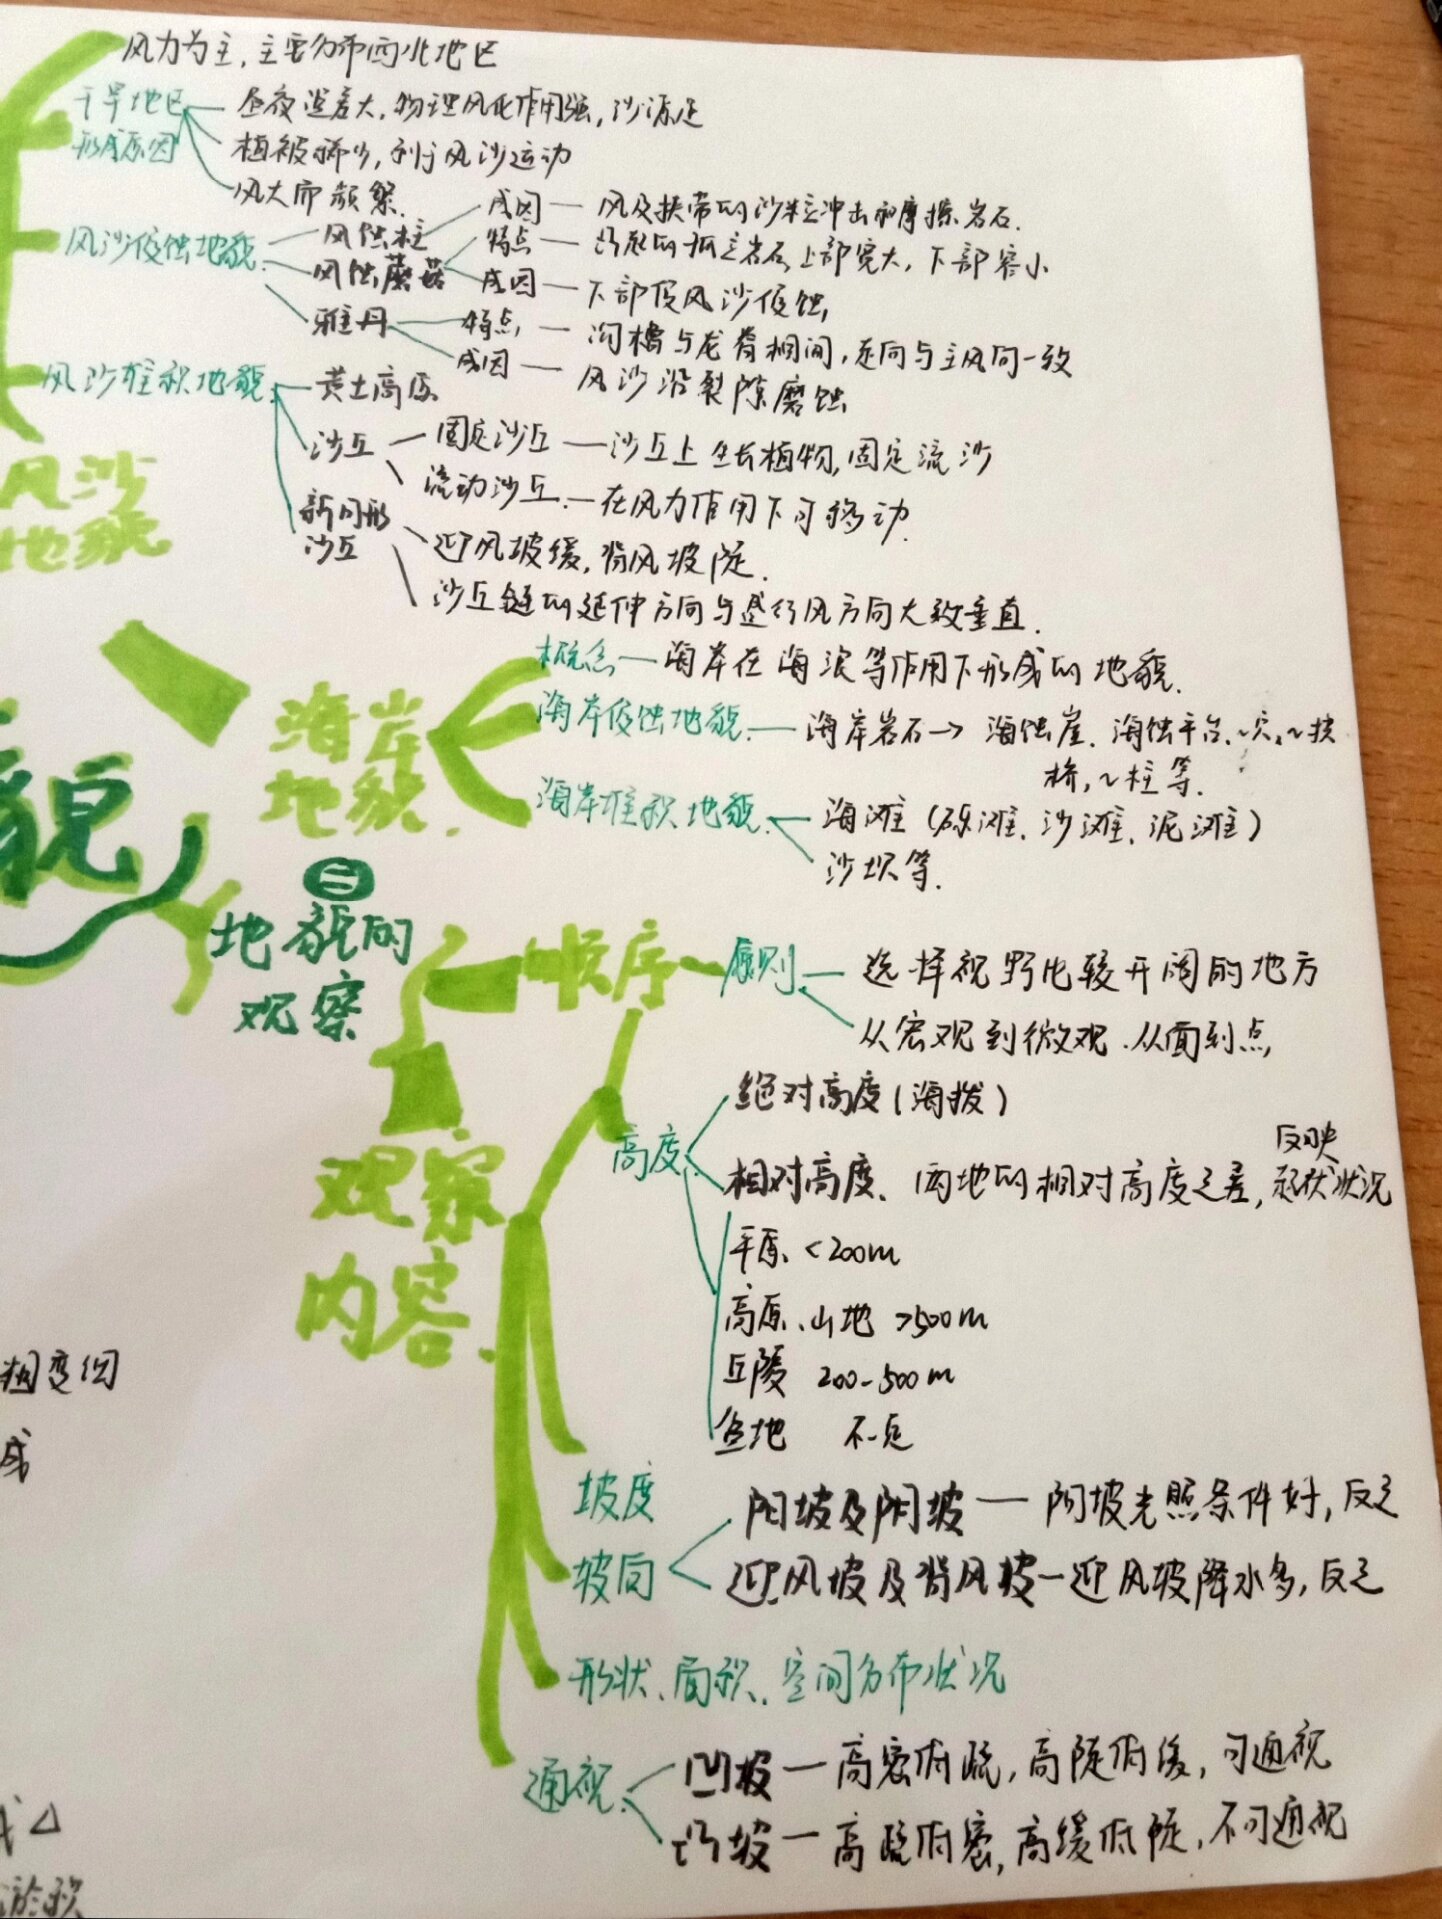 风力为主，主要分布西北地区
干旱地区
形成原因
昼夜温差大，物理风化作用强，沙源足
植被稀少，利于风沙运动
风大而频繁.
风沙侵蚀地貌
风蚀柱
成因 — 风及挟带的沙粒冲击和摩擦岩石.
风蚀蘑菇
特点 — 凸起的孤立岩石上部宽大，下部窄小
成因 — 下部受风沙侵蚀
雅丹
特点 — 沟槽与龙脊相间，走向与主风向一致
成因 — 风沙沿裂隙磨蚀
风沙堆积地貌
黄土高原
沙丘
固定沙丘 — 沙丘上生长植物，固定流沙
流动沙丘 — 在风力作用下可移动.
新月形
沙丘
迎风坡缓，背风坡陡.
沙丘链的延伸方向与盛行风方向大致垂直.
风沙
地貌
海岸
地貌.
概念 — 海岸在海浪等作用下形成的地貌.
海岸侵蚀地貌 — 海岸岩石→海蚀崖、海蚀平台、~穴、~拱
桥，~柱等.
海岸堆积地貌
海滩（砾滩、沙滩、泥滩）
沙坝等.
貌
二
地貌的
观察
顺序
原则
选择视野比较开阔的地方
从宏观到微观、从面到点
观察
内容
高度
绝对高度（海拔）
反映
相对高度、两地的相对高度之差，起伏状况
平原 <200m
高原、山地 >500m
丘陵 200-500m
盆地 不定
坡度
坡向
阳坡及阴坡 — 阳坡光照条件好，反之
迎风坡及背风坡 — 迎风坡降水多，反之
形状、面积、空间分布状况
通视
凹坡 — 高密低疏，高陡低缓，可通视
凸坡 — 高疏低密，高缓低陡，不可通视
细
成